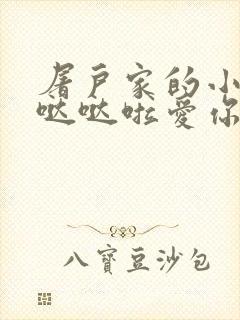 屠户家的小
哒哒啦爱你
八寶豆沙包